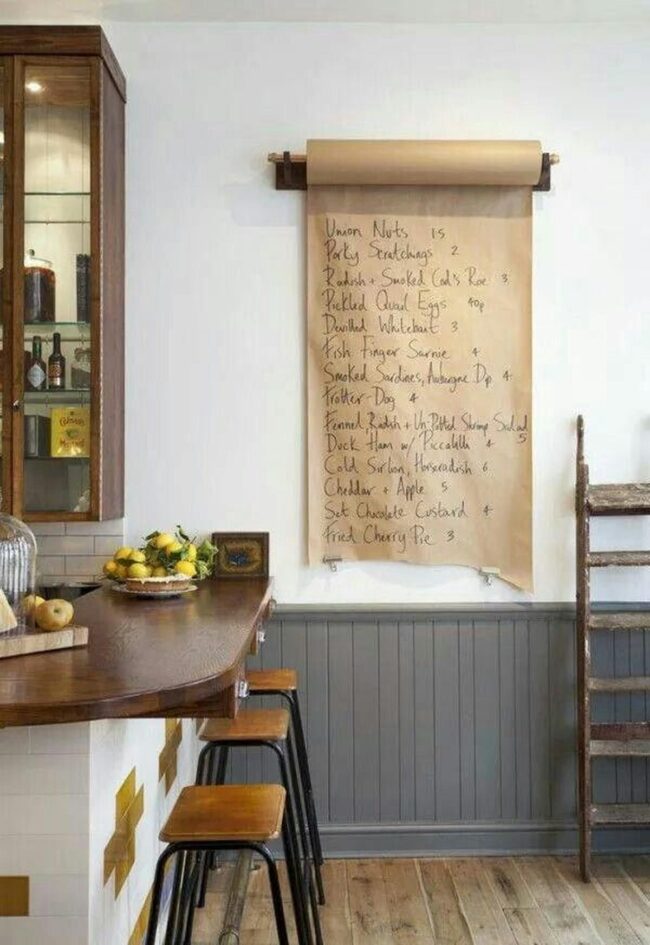 Union Nuts 1.5
Porky Scratchings 2
Radish + Smoked Cod's Roe 3
Pickled Quail Eggs 40p
Devilled Whitebait 3
Fish Finger Sarnie 4
Smoked Sardines, Aubergine Dip 4
Trotter-Dog 4
Fennel, Radish + Un-Potted Shrimp Salad 5
Duck Ham w/ Piccalilli 4
Cold Sirloin, Horseradish 6
Cheddar + Apple 5
Set Chocolate Custard 4
Fried Cherry Pie 3
Mustard